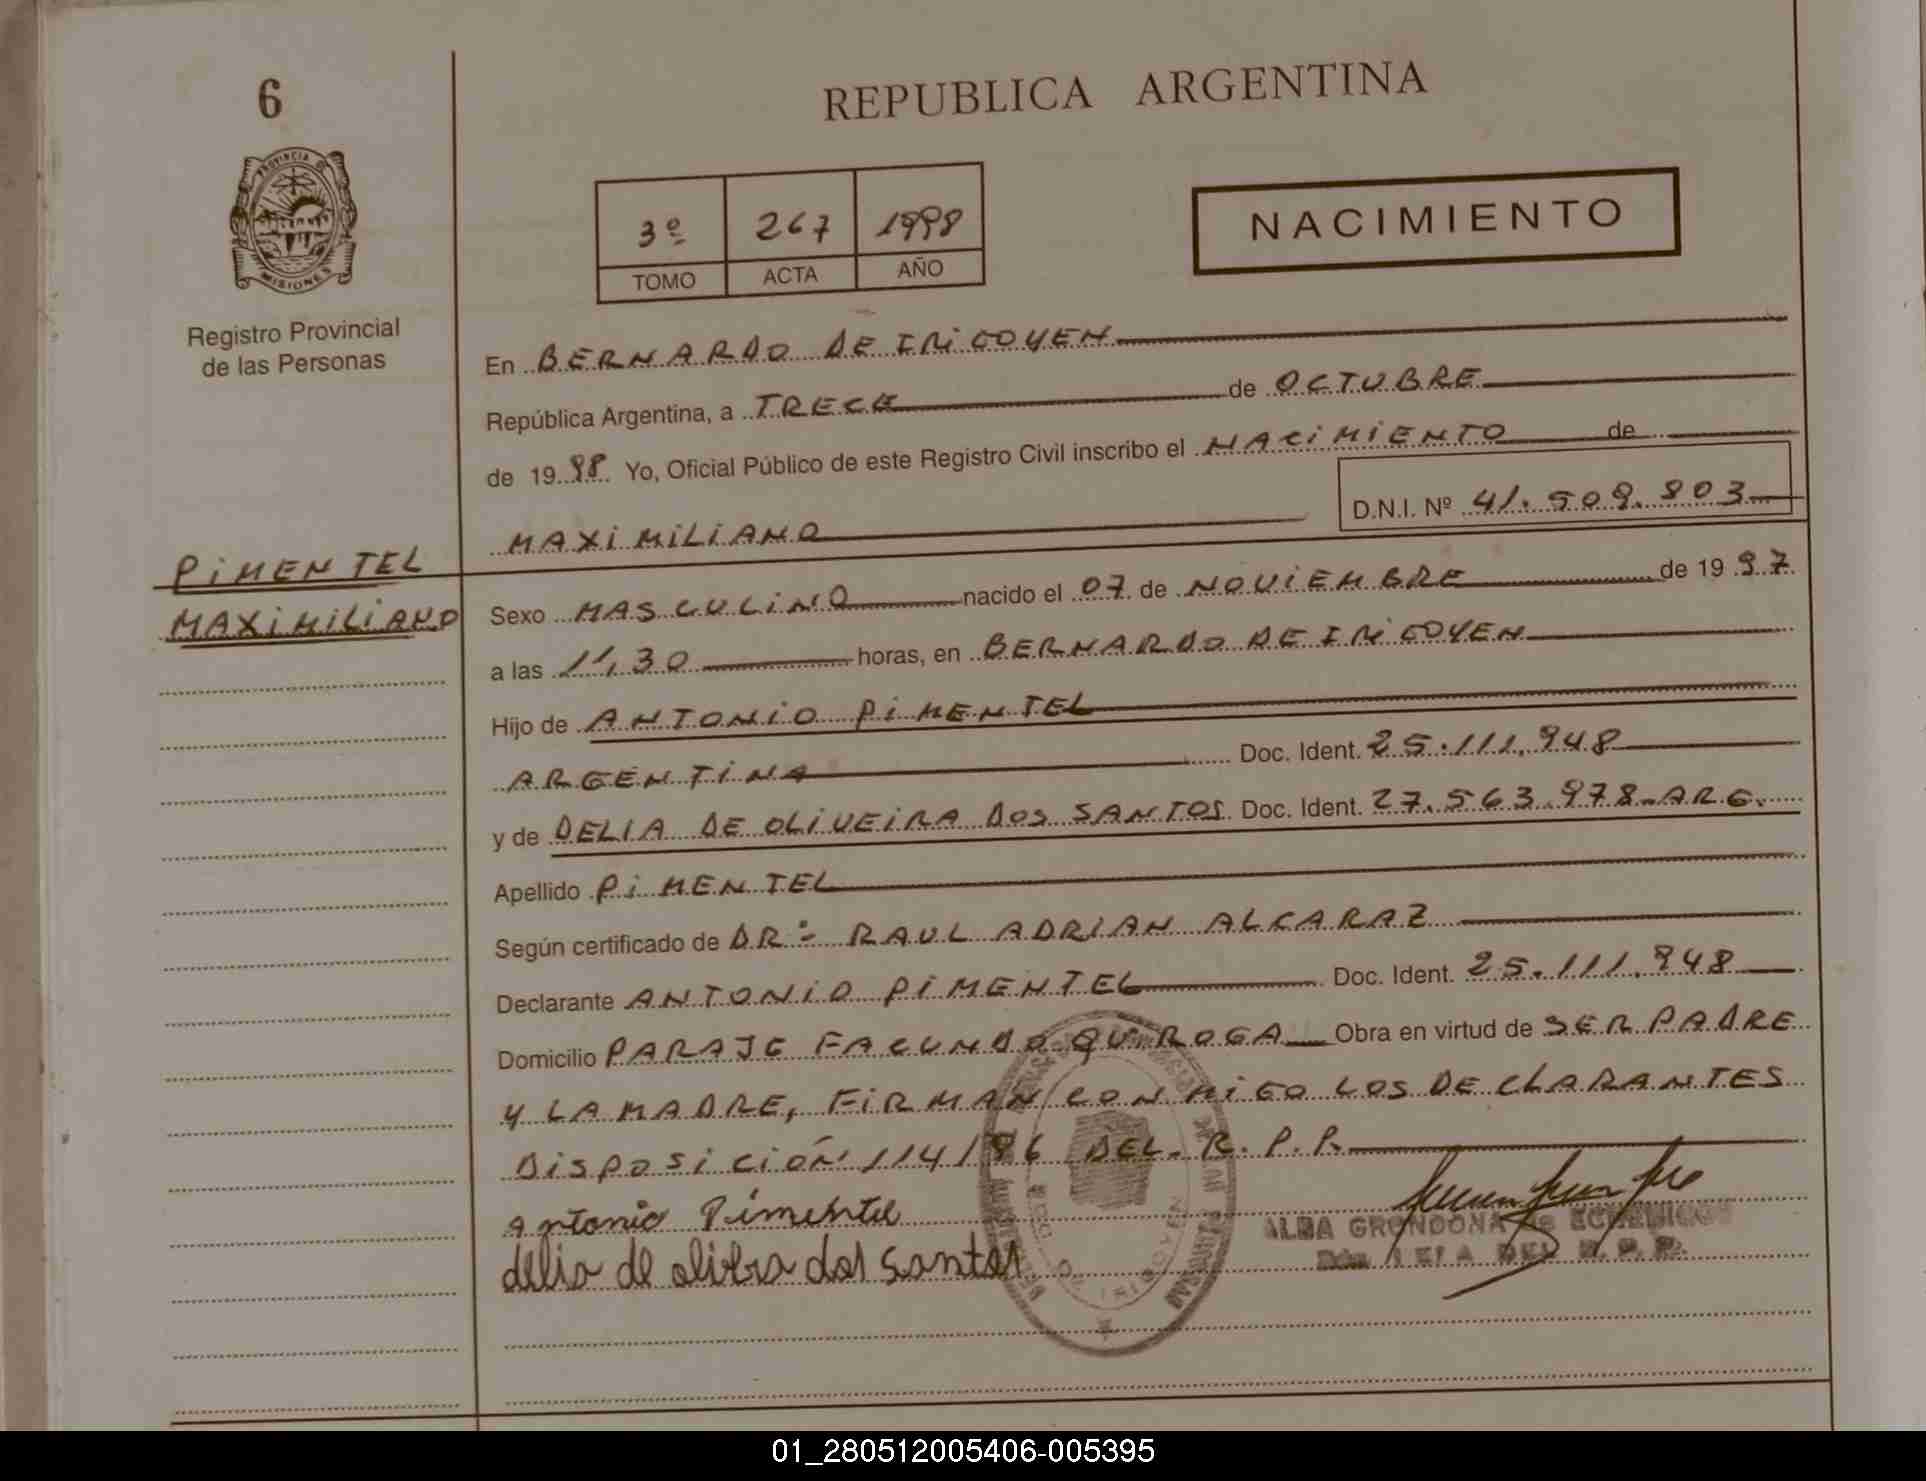 6
REPUBLICA ARGENTINA
PROVINCIA DE
MISIONES
Registro Provincial
de las Personas
3º 267 1998
TOMO ACTA AÑO
NACIMIENTO
En BERNARDO DE IRIGOYEN
República Argentina, a TRECE de OCTUBRE
de 1998 Yo, Oficial Público de este Registro Civil inscribo el NACIMIENTO de
D.N.I. Nº 41.509.803
MAXIMILIANO
PIMENTEL
MAXIMILIANO
Sexo MASCULINO nacido el 07 de NOVIEMBRE de 1997
a las 11,30 horas, en BERNARDO DE IRIGOYEN
Hijo de ANTONIO PIMENTEL
ARGENTINA Doc. Ident. 25.111.948
y de DELIA DE OLIVEIRA DOS SANTOS Doc. Ident. 27.563.978-ARG.
Apellido PIMENTEL
Según certificado de DR: RAUL ADRIAN ALCARAZ
Declarante ANTONIO PIMENTEL Doc. Ident. 25.111.948
Domicilio PARAJE FACUNDO QUIROGA Obra en virtud de SER PADRE
Y LA MADRE, FIRMAN CONMIGO LOS DECLARANTES
DISPOSICIÓN 114/86 DEL R.P.P.
Antonio Pimentel
delia de olibra dos santos
ALBA GRONDONA DE
DEL R.P.P.
01_280512005406-005395